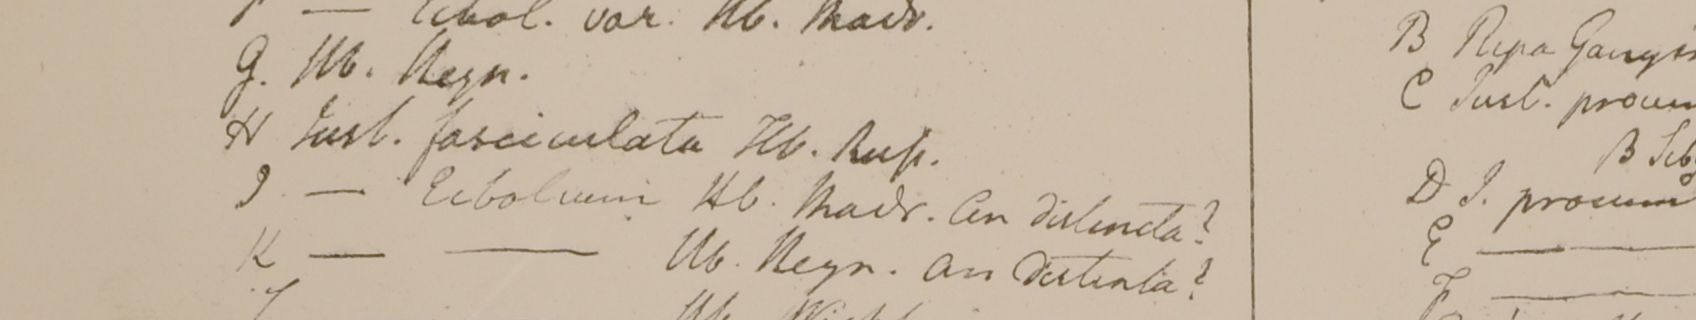 — Ecbol. var. Hb. Madr.
G. Hb. Heyn.
H Just. fasciculata Hb. Rup.
I — Ecbolium Hb. Madr. an distincta?
K — — Hb. Heyn. an distincta?
Hb. Wight
B Ripa Ganges
C Just. procum
B Seb
D J. procum
E —
F —